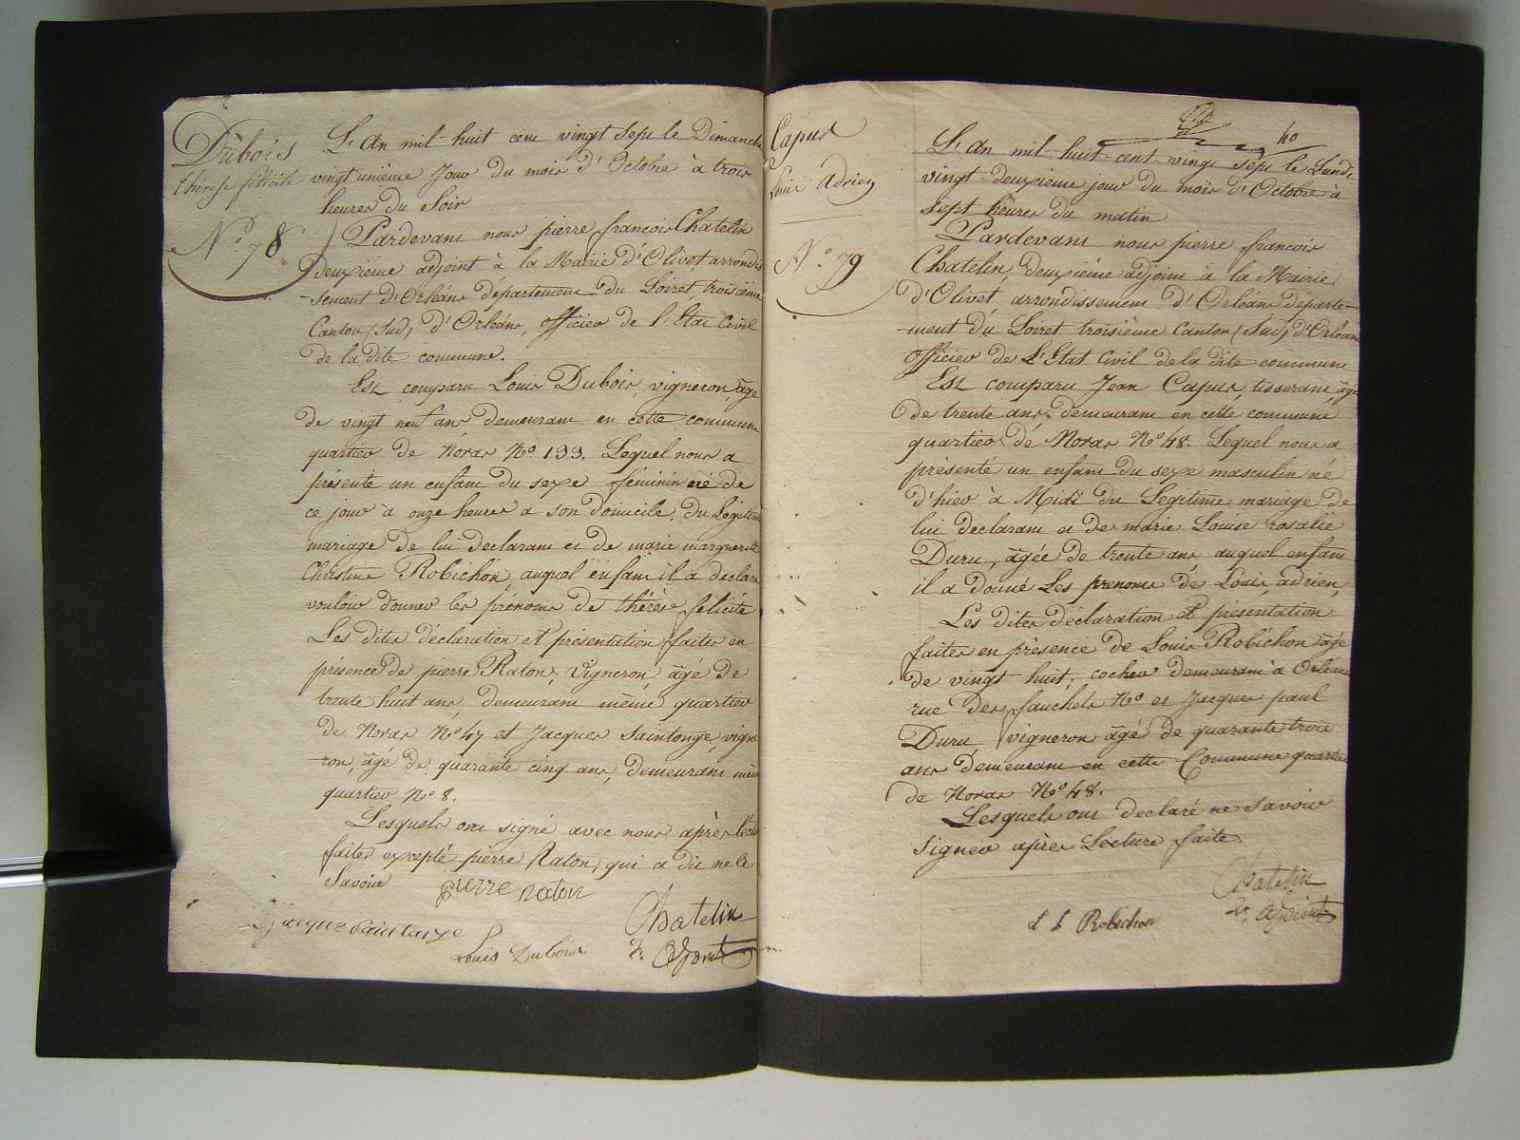 Dubois
thérèse félicité
N.º 78
L'An mil-huit cent vingt sept le Dimanche
vingt unième Jour du mois d'Octobre à trois
heures du Soir
Pardevant nous pierre françois Chatelin
deuxième adjoint à la Mairie d'Olivet arrondis
-sement d'Orléans département du Loiret, troisième
Canton (Sud) d'Orléans, officier de l'Etat Civil
de la dite commune.
Est comparu Louis Dubois, vigneron, âgé
de vingt neuf ans demeurant en cette commune
quartier de Noras Nº 133. Lequel nous a
présenté un enfant du sexe féminin né de
ce jour à onze heures a son domicile, du Légitime
mariage de lui declarant et de marie marguerite
Christine Robichon, auquel enfant il a declaré
vouloir donner les prénoms de thérèse félicité
Les dites déclaration et presentation faites en
présence de pierre Raton, Vigneron, âgé de
trente huit ans, demeurant même quartier
de Noras Nº 47 et Jacques Saintonge, vigne
-ron, âgé de quarante cinq ans, demeurant même
quartier Nº 8.
Lesquels ont signé avec nous après lecture
faite, excepté pierre Raton, qui a dit ne le
Savoir
pierre raton
Jacques saintonge
Louis Dubois
Chatelin
2e. Adjoint
Capus
Louis Adrien
N.º 79
40
L'An mil-huit-cent vingt sept le Lundi
vingt-deuxième jour du mois d'Octobre à
sept heures du matin
Pardevant nous pierre françois
Chatelin, deuxième adjoint à la Mairie
d'Olivet arrondissement d'Orléans départe-
-ment du Loiret troisième Canton (Sud) d'Orléans
officier de L'Etat Civil de la dite commune
Est comparu Jean Capus, tisserant, âgé
de trente ans, demeurant en cette commune
quartier de Noras Nº 48. Lequel nous a
présenté un enfant du sexe masculin né
d'hier à Midi du Légitime mariage de
lui declarant et de marie Louise rosalie
Duru, âgée de trente ans auquel enfant
il a donné Les prenoms de Louis, adrien,
Les dites déclaration et présentation
faites en présence de Louis Robichon âgé
de vingt huit, cocher demeurant à Orléans
rue des fauchets Nº et Jacques paul
Duru vigneron âgé de quarante trois
ans demeurant en cette Commune quartier
de Noras Nº 48.
Lesquels ont declaré ne Savoir
Signer après Lecture faite
Chatelin
2e. adjoint
L L Robichon